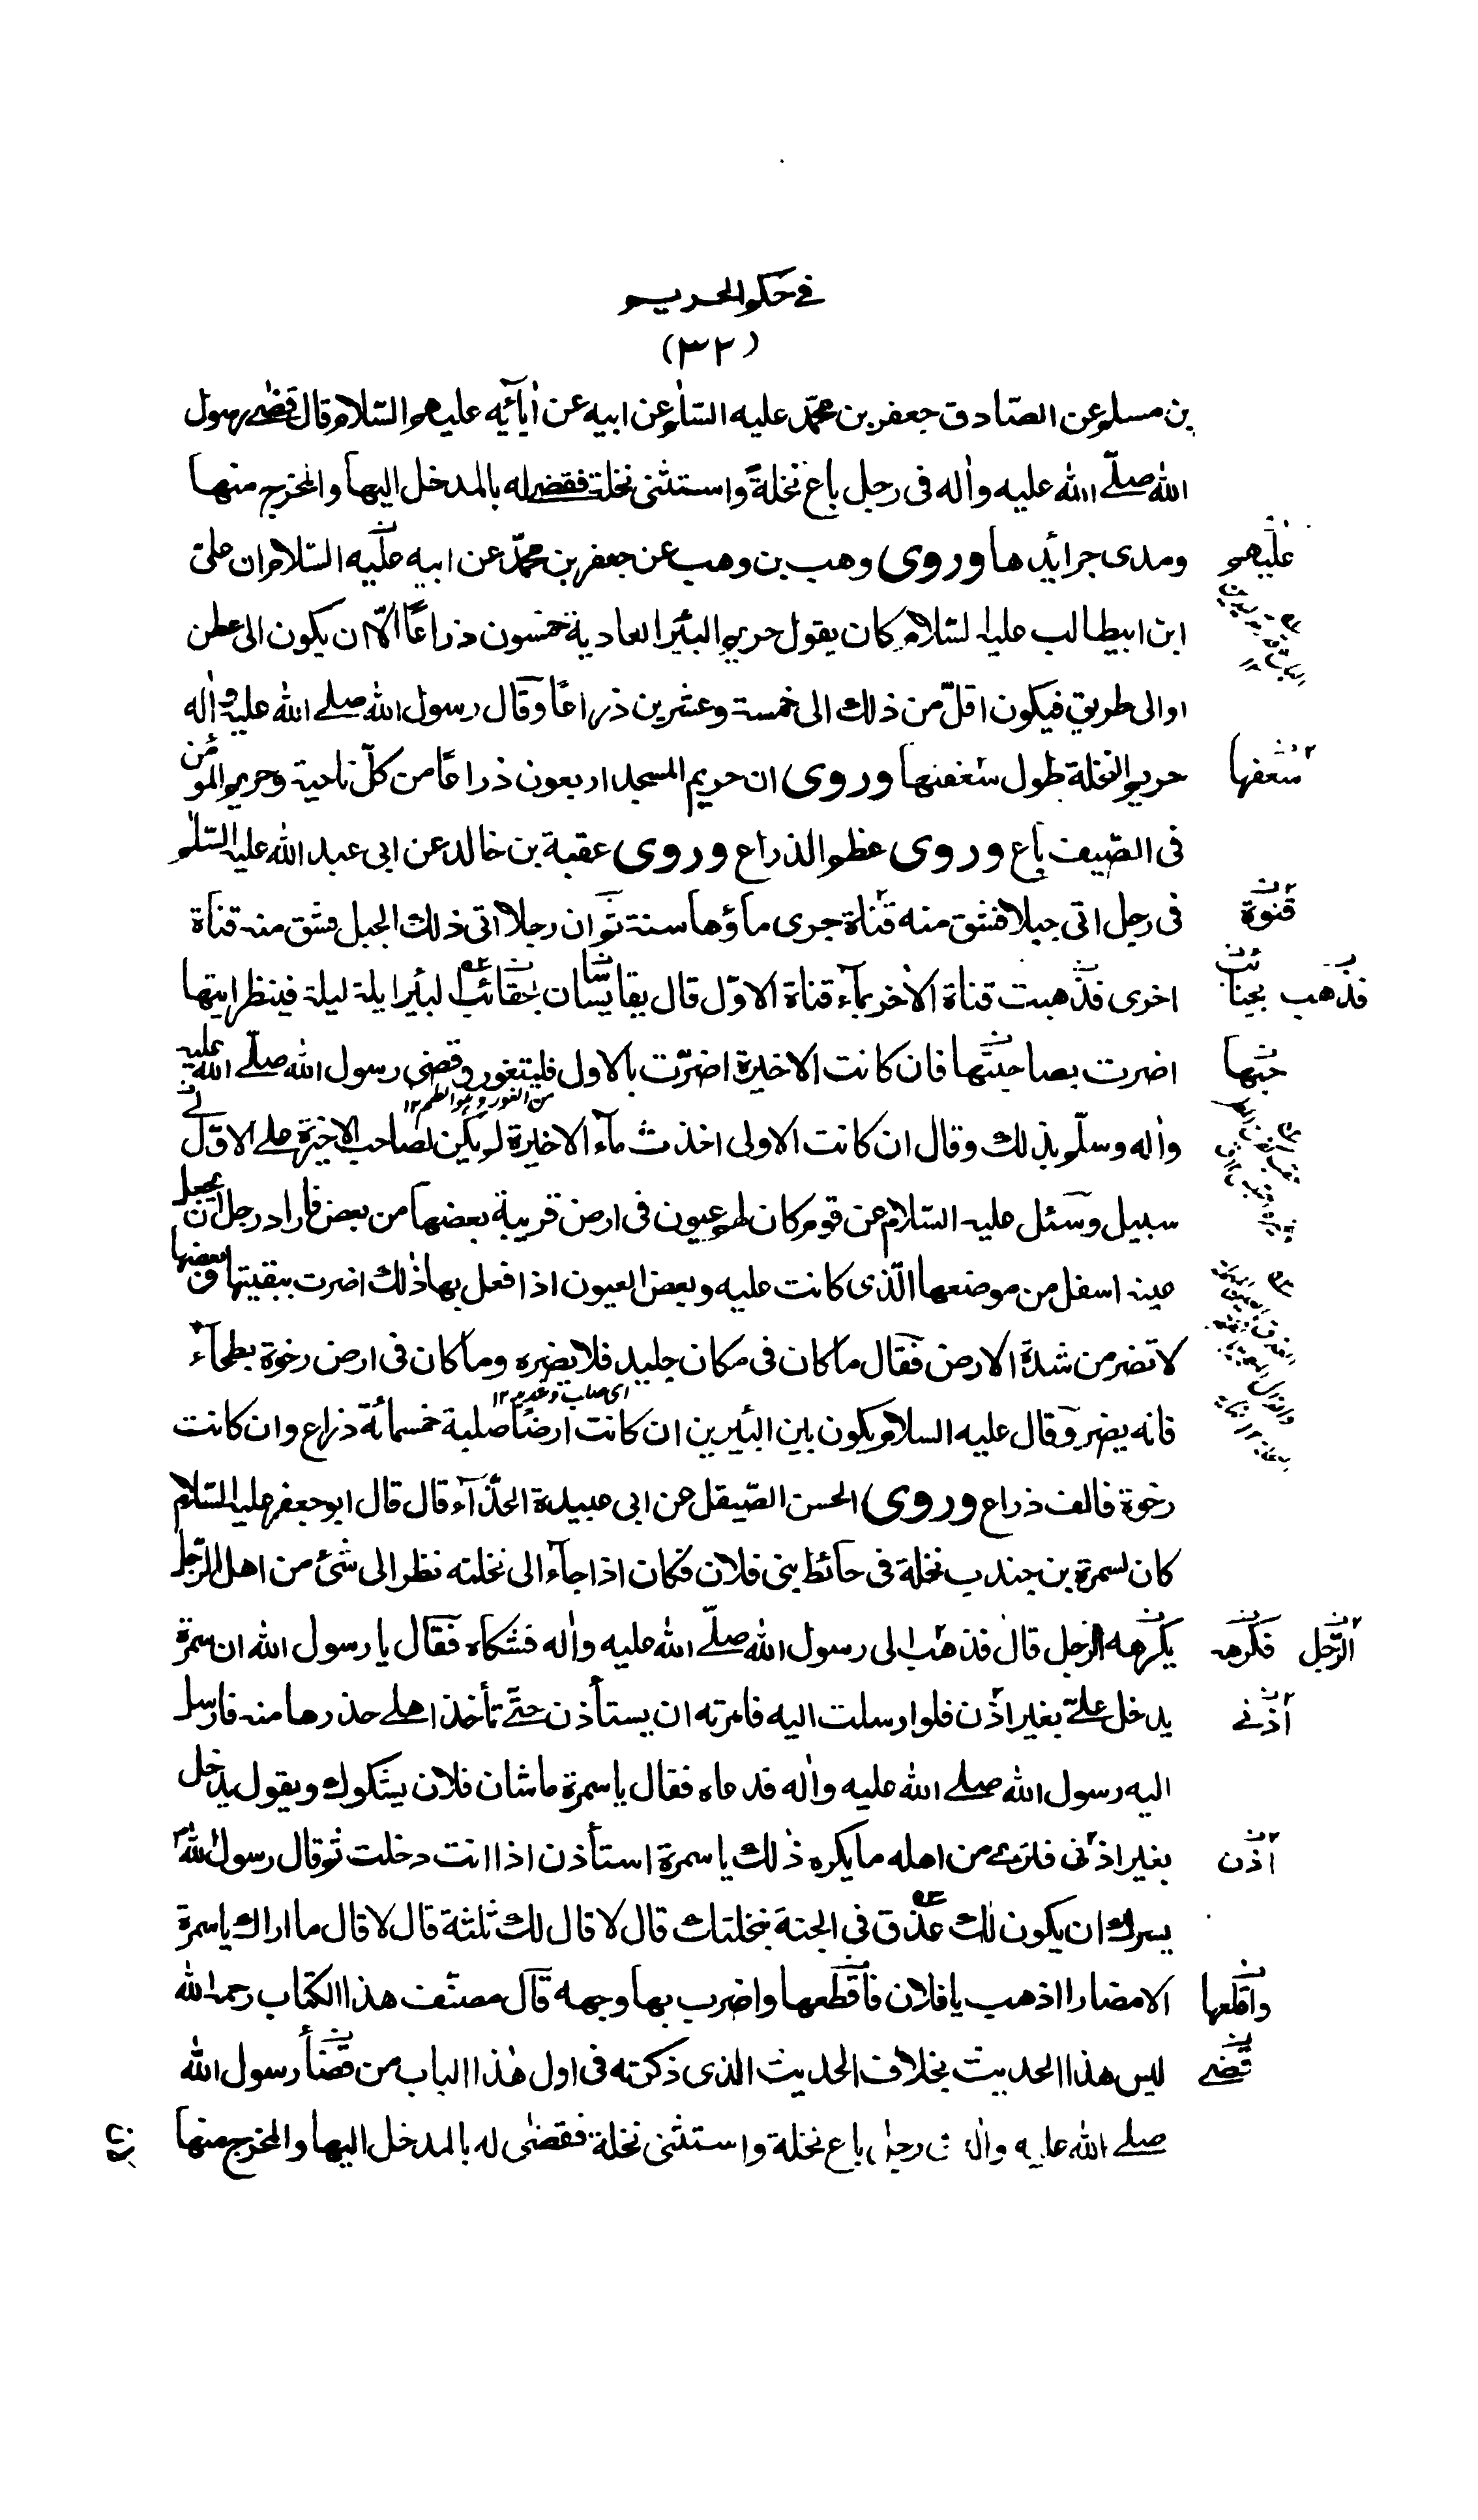 في حكم الحريم
(٣٢)
بن مسلم عن الصّادق جعفر بن محمّد عليه السّلم عن ابيه عن اٰبآئه عليهم السّلام قال قضى رسول
الله صلّے الله عليه واٰله فى رجل باع نخلةً واستثنى نخلة فقضےله بالمدخل اليها والمخرج منها
ومدى جرائدها وروى وهب بن وهب عن جعفر بن محمّد عن ابيه عليه السّلام ان علىّ
عليهم
ابن ابيطالب عليه السّلام كان يقول حريم البئر العادية خمسون ذراعًا الّا ان يكون الى عطن
او الى طريق فيكون اقلّ من ذلك الى خمسة وعشرين ذراعًا وقال رسول الله صلے الله عليه واٰله
حريم النخلة طول سعفها وروى ان حريم المسجد اربعون ذراعًا من كلّ ناحية وحريم المؤمن
سعفها
فى الصّيف باع وروى عظم الذراع وروى عقبة بن خالد عن ابى عبد الله عليه السّلم
فى رجل اتى جبلا فشق منه قناة جرى ماؤها سنة ثم ان رجلا اتى ذلك الجبل فشق منه قناة
قنوة
اخرى فذهبت قناة الاٰخر بمآء قناة الاوّل قال يقايسان بحقائب البئر ليلة ليلة فينظر ايتها
فذهب بجنائب
اضرت بصاحبتها فان كانت الاخيرة اضرّت بالاول فليتغور وقضى رسول الله صلّے الله عليه
حبتها
من الغور وهو الطم ١٢
واٰله وسلّم بذلك وقال ان كانت الاولى اخذت مآء الاخيرة لم يكن لصاحب الاخيرة علے الاوّل
سبيل وسئل عليه السّلام عن قوم كان لهم عيون فى ارض قريبة بعضها من بعض فاراد رجل ان يجعل
عينه اسفل من موضعها الّذى كانت عليه وبعض العيون اذا فعل بها ذٰلك اضرت ببقيتها وبعضها
لا تضر من شدة الارض فقال ما كان فى مكان جليد فلا يضره وما كان فى ارض رخوة بطحآء
فانه يضر وقال عليه السلام يكون بين البئرين ان كانت ارضًا صلبة خمسمائة ذراع وان كانت
رخوة فالف ذراع وروى الحسن الصّيقل عن ابى عبيدة الحذّآء قال قال ابو جعفر عليه السّلام
كان لسمرة بن جندب نخلة فى حائط بنى فلان فكان اذا جآء الى نخلته نظر الى شئ من اهل الرّجل
يكرهه الرجل قال فذهب الى رسول الله صلّے الله عليه واٰله فشكاه فقال يا رسول الله ان سمرة
الرّجل فكرهه
يدخل علےّ بغير اذن فلو ارسلت اليه فامرته ان يستأذن حتّے تأخذ اهلے حذرها منه فارسل
اذنے
اليه رسول الله صلے الله عليه واٰله فدعاه فقال يا سمرة ما شان فلان يشكوك ويقول يدخل
بغير اذنى فترے من اهله ما يكره ذٰلك يا سمرة استأذن اذا انت دخلت ثم قال رسول الله
اذن
يسرك ان يكون لك عذق فى الجنة بنخلتك قال لا قال لك ثلثة قال لا قال ما اراك يا سمرة
الا مضارا اذهب يا فلان فاقطعها واضرب بها وجهه قال مصنّف هذا الكتاب رحمه الله
واقلعها
ليس هذا الحديث بخلاف الحديث الذى ذكرته فى اول هٰذا الباب من قضأ رسول الله
قضے
صلے الله عليه واله فى رجل باع نخلة واستثنى نخلة فقضى له بالمدخل اليها والمخرج منها